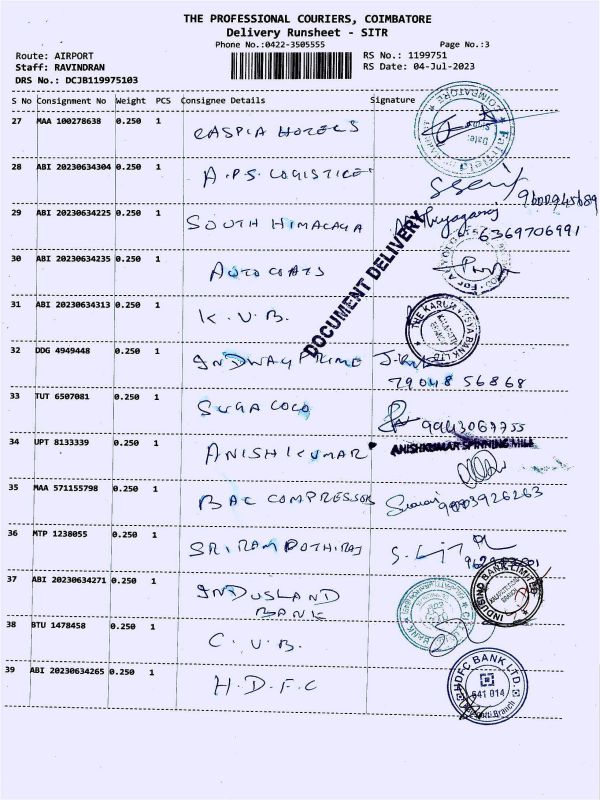 THE PROFESSIONAL COURIERS, COIMBATORE
Delivery Runsheet - SITR
Phone No.:0422-3505555 Page No.:3
Route: AIRPORT RS No.: 1199751
Staff: RAVINDRAN RS Date: 04-Jul-2023
DRS No.: DCJB119975103
S No Consignment No Weight PCS Consignee Details Signature
27 MAA 100278638 0.250 1 CASPIA HOTELS
COIMBATORE
Date:
28 ABI 20230634304 0.250 1 A.P.S. LOGISTICE
9600945689
29 ABI 20230634225 0.250 1 SOUTH HIMALAYA
6369706991
DOCUMENT DELIVERY
30 ABI 20230634235 0.250 1 AUTO COATS
31 ABI 20230634313 0.250 1 K.V.B.
THE KARUR VYSYA BANK LTD
32 DDG 4949448 0.250 1 INDWAY PRIME
79048 56868
33 TUT 6507081 0.250 1 SUGA COCO
9943067755
34 UPT 8133339 0.250 1 ANISHKUMAR
ANISHKUMAR SPINNING MILL
35 MAA 571155798 0.250 1 BAC COMPRESSOR
36 MTP 1238055 0.250 1 SRI RAM POTHIRAJ
37 ABI 20230634271 0.250 1 INDUSLAND
BANK
INDUSIND BANK LIMITED
38 BTU 1478458 0.250 1 C.U.B.
39 ABI 20230634265 0.250 1 H.D.F.C
HDFC BANK LTD.
641 014
Branch